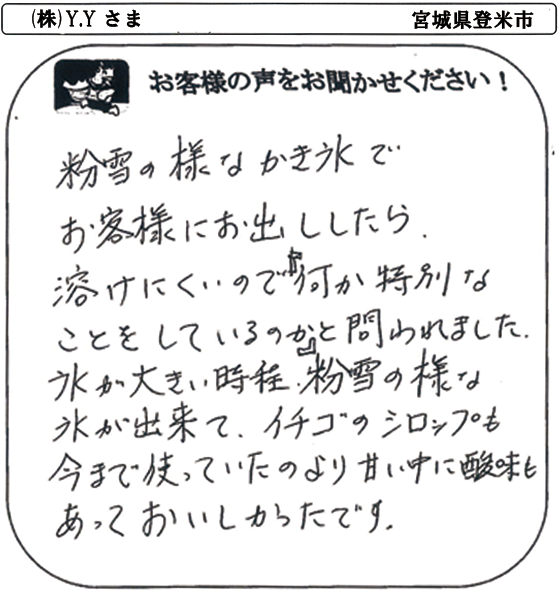 (株)Y.Y さま
宮城県登米市
お客様の声をお聞かせください！
粉雪の様なかき氷で
お客様にお出ししたら、
溶けにくいのですけど何か特別な
ことをしているのかと問われました。
氷が大きい時程、粉雪の様な
氷が出来て、イチゴのシロップも
今まで使っていたのより甘い中に酸味も
あっておいしかったです。